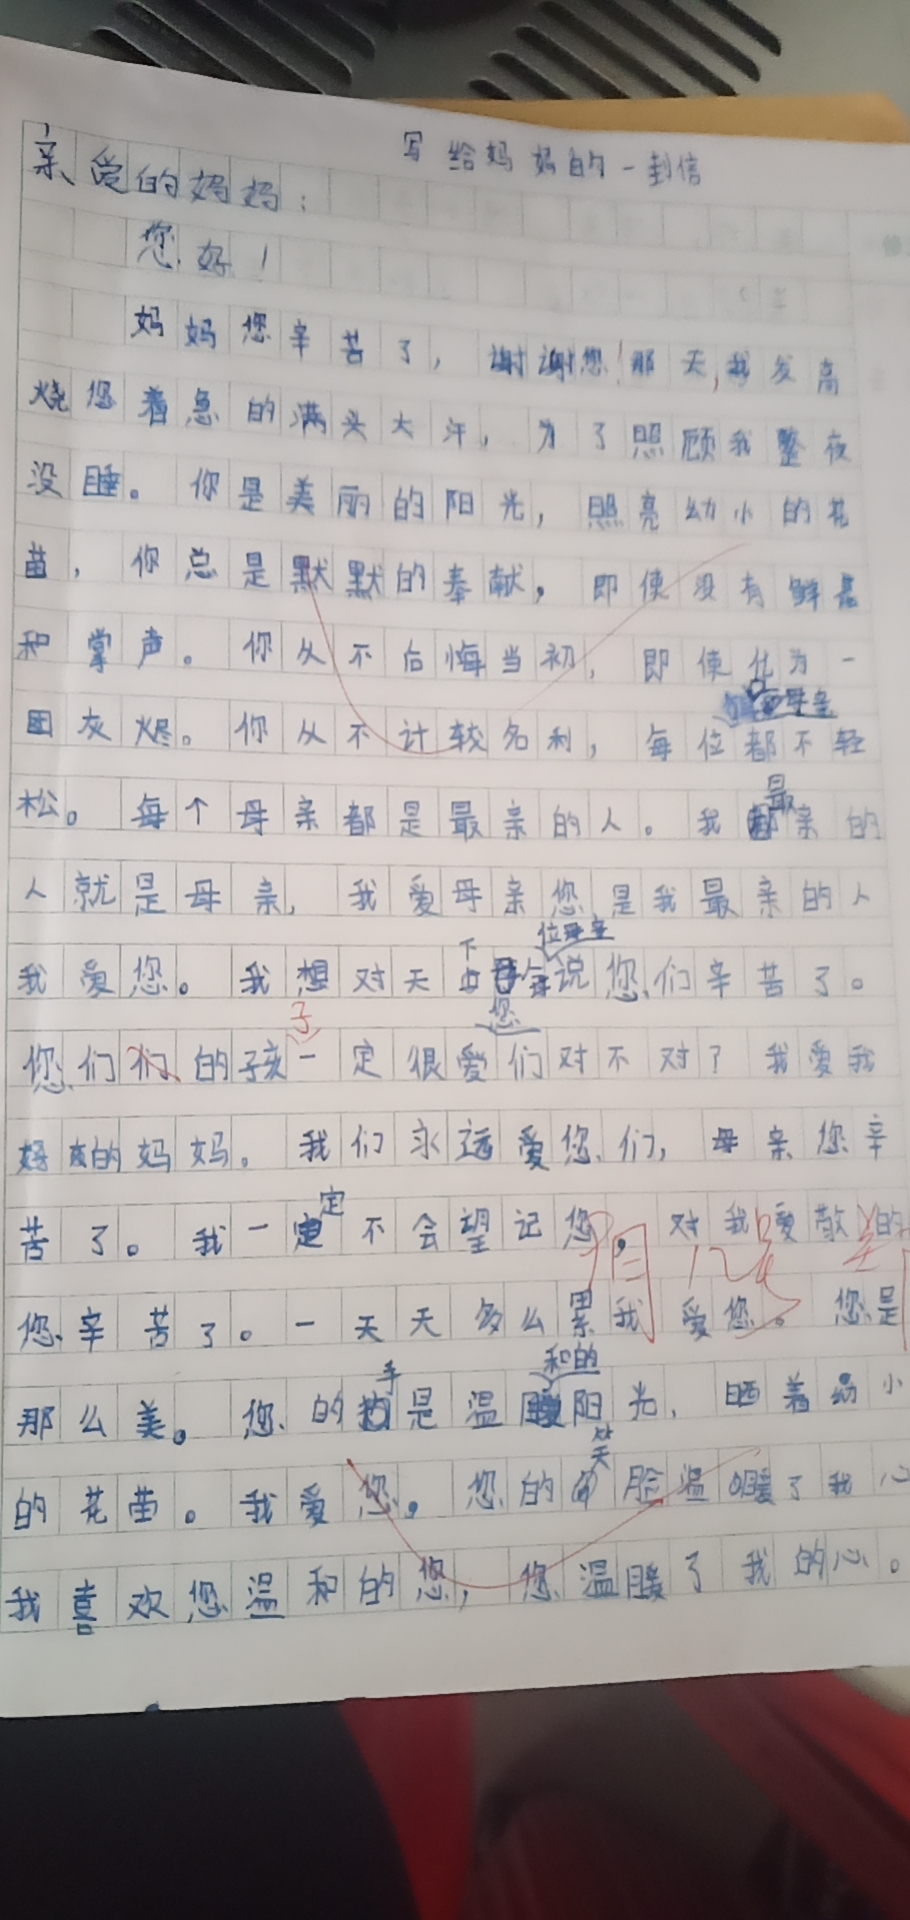 写给妈妈的一封信
亲爱的妈妈：
您好！
妈妈您辛苦了，谢谢您！那天，我发高
烧您着急的满头大汗，为了照顾我整夜
没睡。你是美丽的阳光，照亮幼小的花
苗，你总是默默的奉献，即使没有鲜花
和掌声。你从不后悔当初，即使化为一
团灰烬。你从不计较名利，每位母亲都不轻
松。每个母亲都是最亲的人。我最亲的
人就是母亲，我爱母亲您是我最亲的人
我爱您。我想对天下每位母亲说您们辛苦了。
您们们的孩子一定很爱您们对不对？我爱我
的妈妈。我们永远爱您们，母亲您辛
苦了。我一定不会望记您，对我爱敬的
您辛苦了。一天天多么累我爱您。您是
那么美。您的手是温和的阳光，晒着幼小
的花苗。我爱您。您的笑脸温暖了我心
我喜欢您温和的您，您温暖了我的心。